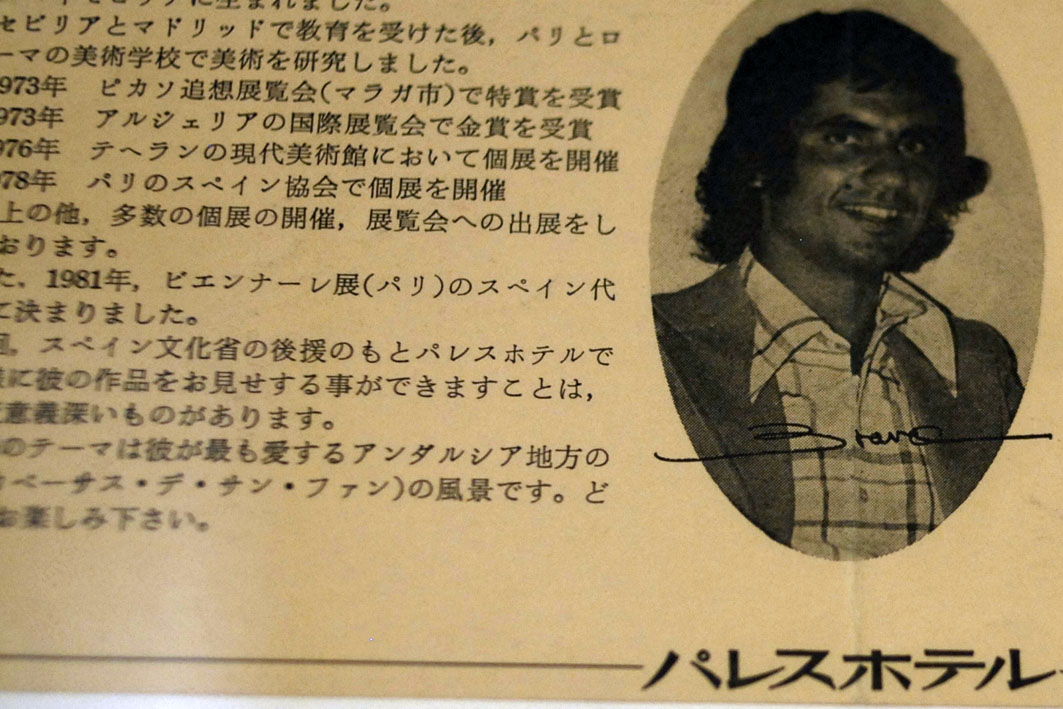 に生まれました。
セビリアとマドリッドで教育を受けた後，パリとロ
ーマの美術学校で美術を研究しました。
1973年 ピカソ追想展覧会(マラガ市)で特賞を受賞
1973年 アルジェリアの国際展覧会で金賞を受賞
1976年 テヘランの現代美術館において個展を開催
978年 パリのスペイン協会で個展を開催
上の他，多数の個展の開催，展覧会への出展をし
おります。
た，1981年，ビエンナーレ展(パリ)のスペイン代
て決まりました。
回，スペイン文化省の後援のもとパレスホテルで
様に彼の作品をお見せする事ができますことは，
意義深いものがあります。
のテーマは彼が最も愛するアンダルシア地方の
カベーサス・デ・サン・ファン)の風景です。ど
お楽しみ下さい。
Bravo
パレスホテル